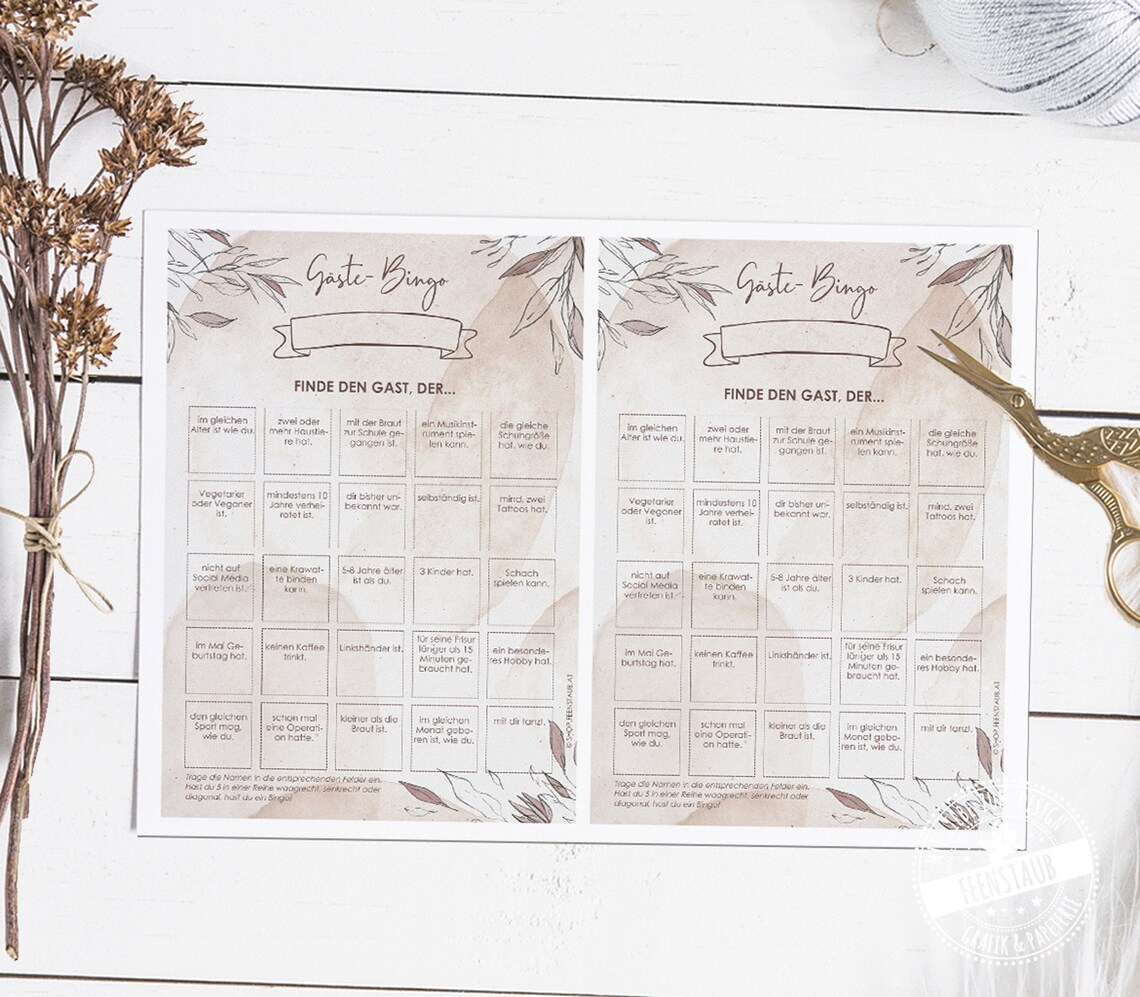 Gäste-Bingo
FINDE DEN GAST, DER...
im gleichen
Alter ist wie du.
zwei oder
mehr Haustie-
re hat.
mit der Braut
zur Schule ge-
gangen ist.
ein Musikinst-
rument spie-
len kann.
die gleiche
Schungröße
hat, wie du.
Vegetarier
oder Veganer
ist.
mindestens 10
Jahre verhei-
ratet ist.
dir bisher un-
bekannt war.
selbständig ist.
mind. zwei
Tattoos hat.
nicht auf
Social Media
vertreten ist.
eine Krawat-
te binden
kann.
5-8 Jahre älter
ist als du.
3 Kinder hat.
Schach
spielen kann.
im Mai Ge-
burtstag hat.
keinen Kaffee
trinkt.
Linkshänder ist.
für seine Frisur
länger als 15
Minuten ge-
braucht hat.
ein besonde-
res Hobby hat.
den gleichen
Sport mag,
wie du.
schon mal
eine Operati-
on hatte.
kleiner als die
Braut ist.
im gleichen
Monat gebo-
ren ist, wie du.
mit dir tanzt.
Trage die Namen in die entsprechenden Felder ein.
Hast du 5 in einer Reihe waagrecht, senkrecht oder
diagonal, hast du ein Bingo!
© SHOP.FEENSTAUB.AT
Gäste-Bingo
FINDE DEN GAST, DER...
im gleichen
Alter ist wie du.
zwei oder
mehr Haustie-
re hat.
mit der Braut
zur Schule ge-
gangen ist.
ein Musikinst-
rument spie-
len kann.
die gleiche
Schungröße
hat, wie du.
Vegetarier
oder Veganer
ist.
mindestens 10
Jahre verhei-
ratet ist.
dir bisher un-
bekannt war.
selbständig ist.
mind. zwei
Tattoos hat.
nicht auf
Social Media
vertreten ist.
eine Krawat-
te binden
kann.
5-8 Jahre älter
ist als du.
3 Kinder hat.
Schach
spielen kann.
im Mai Ge-
burtstag hat.
keinen Kaffee
trinkt.
Linkshänder ist.
für seine Frisur
länger als 15
Minuten ge-
braucht hat.
ein besonde-
res Hobby hat.
den gleichen
Sport mag,
wie du.
schon mal
eine Operati-
on hatte.
kleiner als die
Braut ist.
im gleichen
Monat gebo-
ren ist, wie du.
mit dir tanzt.
Trage die Namen in die entsprechenden Felder ein.
Hast du 5 in einer Reihe waagrecht, senkrecht oder
diagonal, hast du ein Bingo!
© SHOP.FEENSTAUB.AT
FEENSTAUB
GRAFIK & PAPETERIE